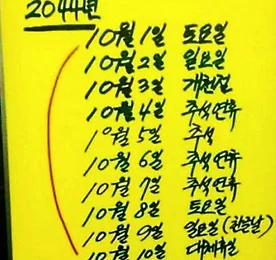 2044년
10월 1일 토요일
10월 2일 일요일
10월 3일 개천절
10월 4일 추석연휴
10월 5일 추석
10월 6일 추석연휴
10월 7일 추석연휴
10월 8일 토요일
10월 9일 일요일 (한글날)
10월 10일 대체휴일